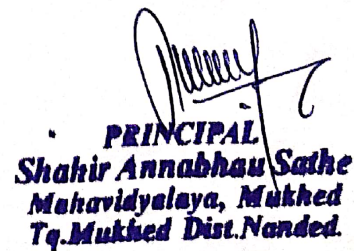 PRINCIPAL
Shahir Annabhau Sathe
Mahavidyalaya, Mukhed
Tq.Mukhed Dist.Nanded.